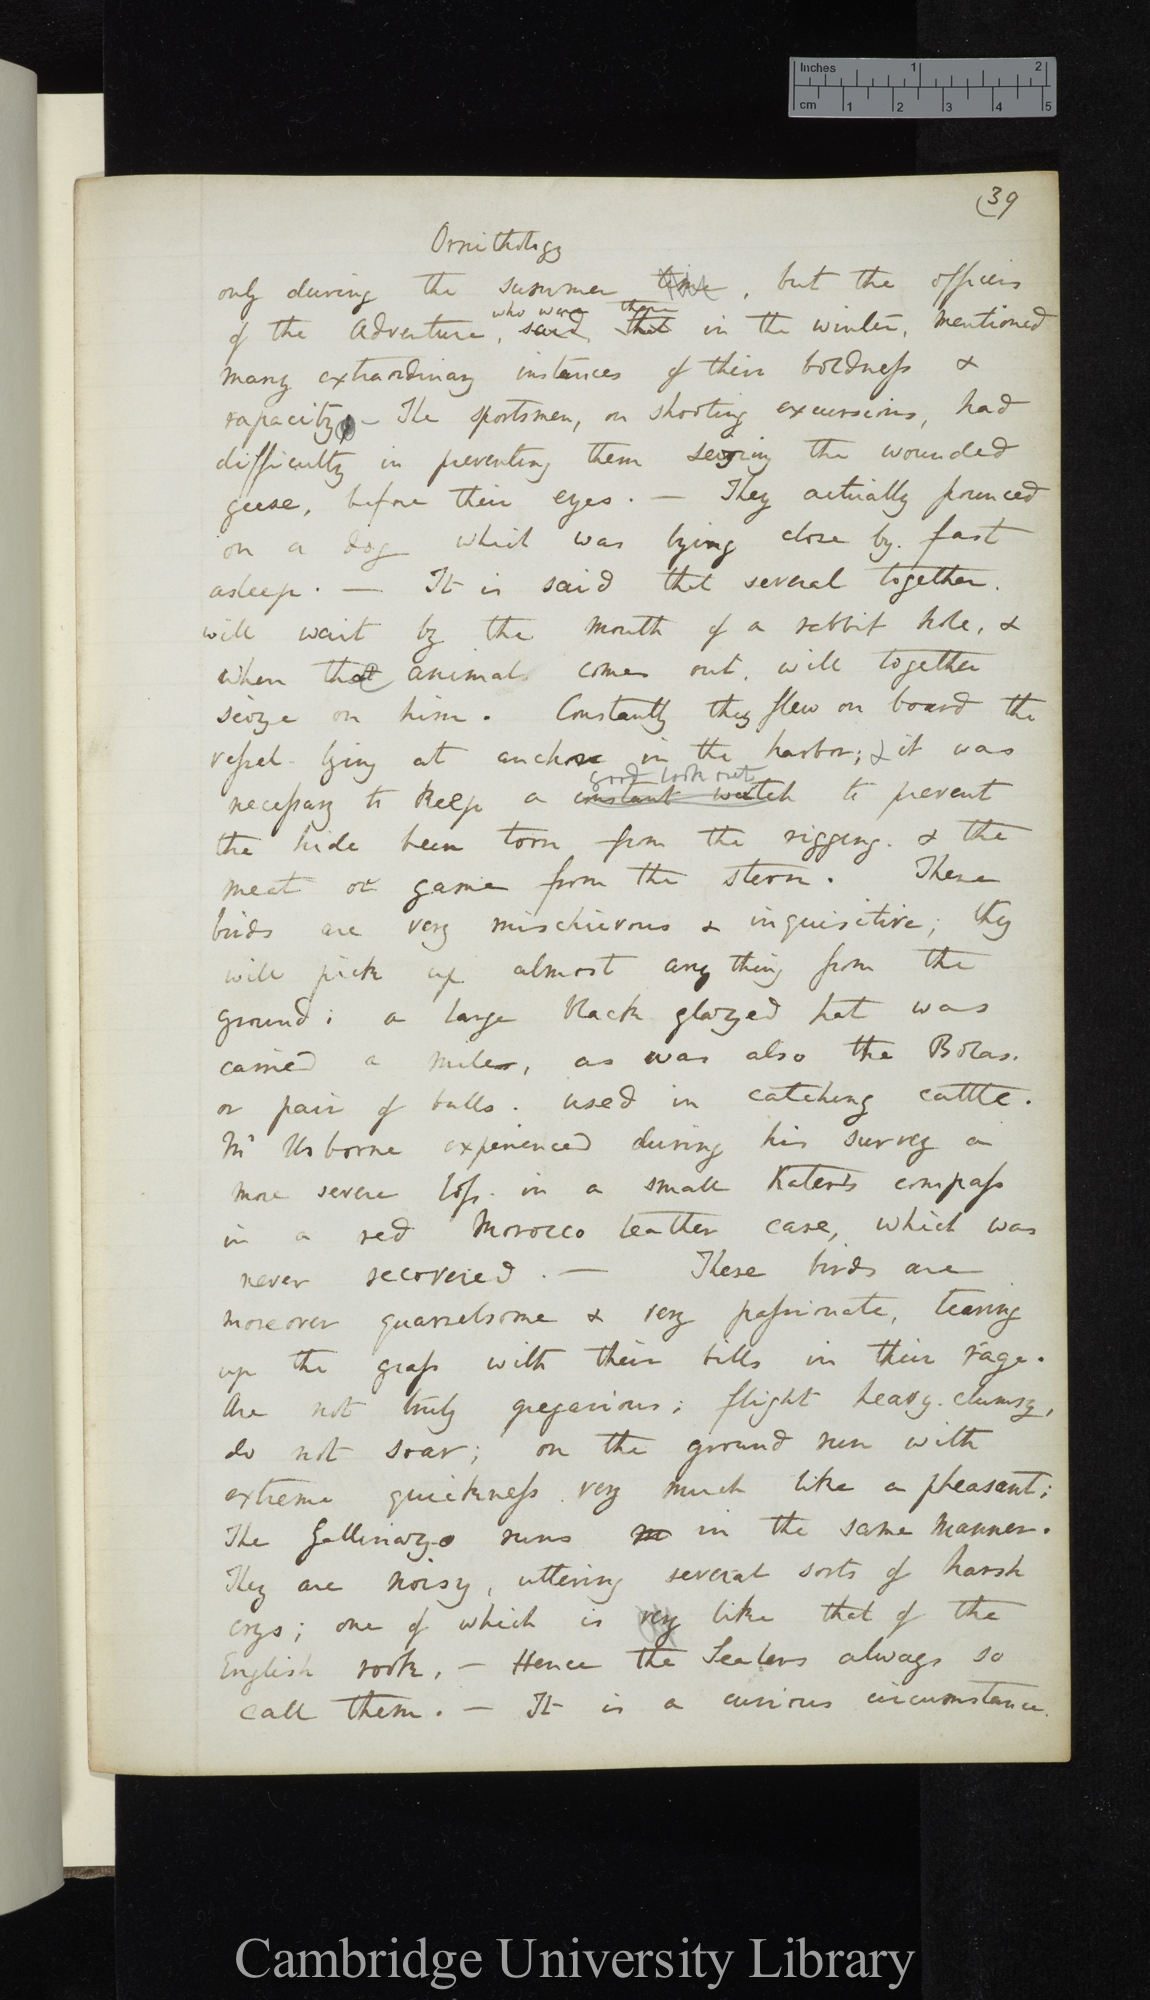 Inches 1 2
cm 1 2 3 4 5
(39
Ornithology
only during the summer time, but the officers
who were there
of the Adventure, said that in the winter, mentioned
many extraordinary instances of their boldness &
rapacity. — The sportsmen, on shooting excursions, had
difficulty in preventing them seizing the wounded
geese, before their eyes. — They actually pounced
on a dog which was lying close by. fast
asleep. — It is said that several together.
will wait by the mouth of a rabbit hole, &
when that animal comes out, will together
seize on him. Constantly they flew on board the
vessel lying at anchor in the harbor; & it was
good look out
necessary to keep a constant watch to prevent
the hide been torn from the rigging. & the
meat or game from the stern. These
birds are very mischievous & inquisitive; they
will pick up almost any thing from the
ground; a large black glazed hat was
carried a mile, as was also the Bolas.
or pair of balls. used in catching cattle.
Mr Usborne experienced during his survey a
more severe loss. in a small Kater's compass
in a red Morocco leather case, which was
never recovered. — These birds are
moreover quarrelsome & very passionate, tearing
up the grass with their bills in their rage.
Are not truly gregarious; flight heavy. clumsy,
do not soar; on the ground run with
extreme quickness very much like a pheasant;
The Gallinazo runs in the same manner.
They are noisy, uttering several sorts of harsh
crys; one of which is very like that of the
English rook, — Hence the Sealers always so
call them. — It is a curious circumstance.
Cambridge University Library